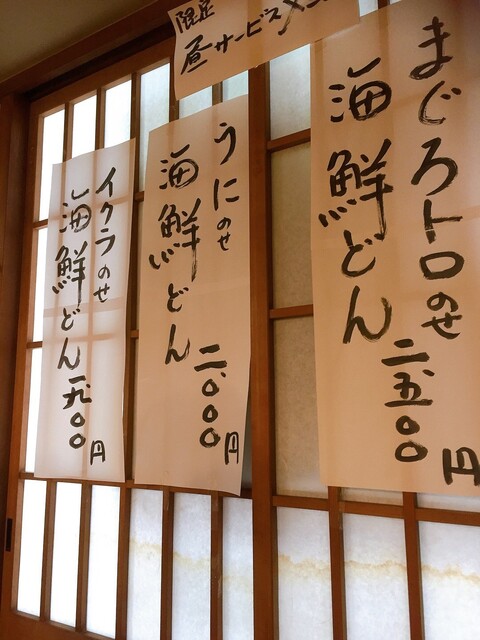 限定
昼サービスメ
まぐろトロのせ
海鮮どん
二.五〇〇円
うにのせ
海鮮どん
二.〇〇〇円
イクラのせ
海鮮どん
一.九〇〇円